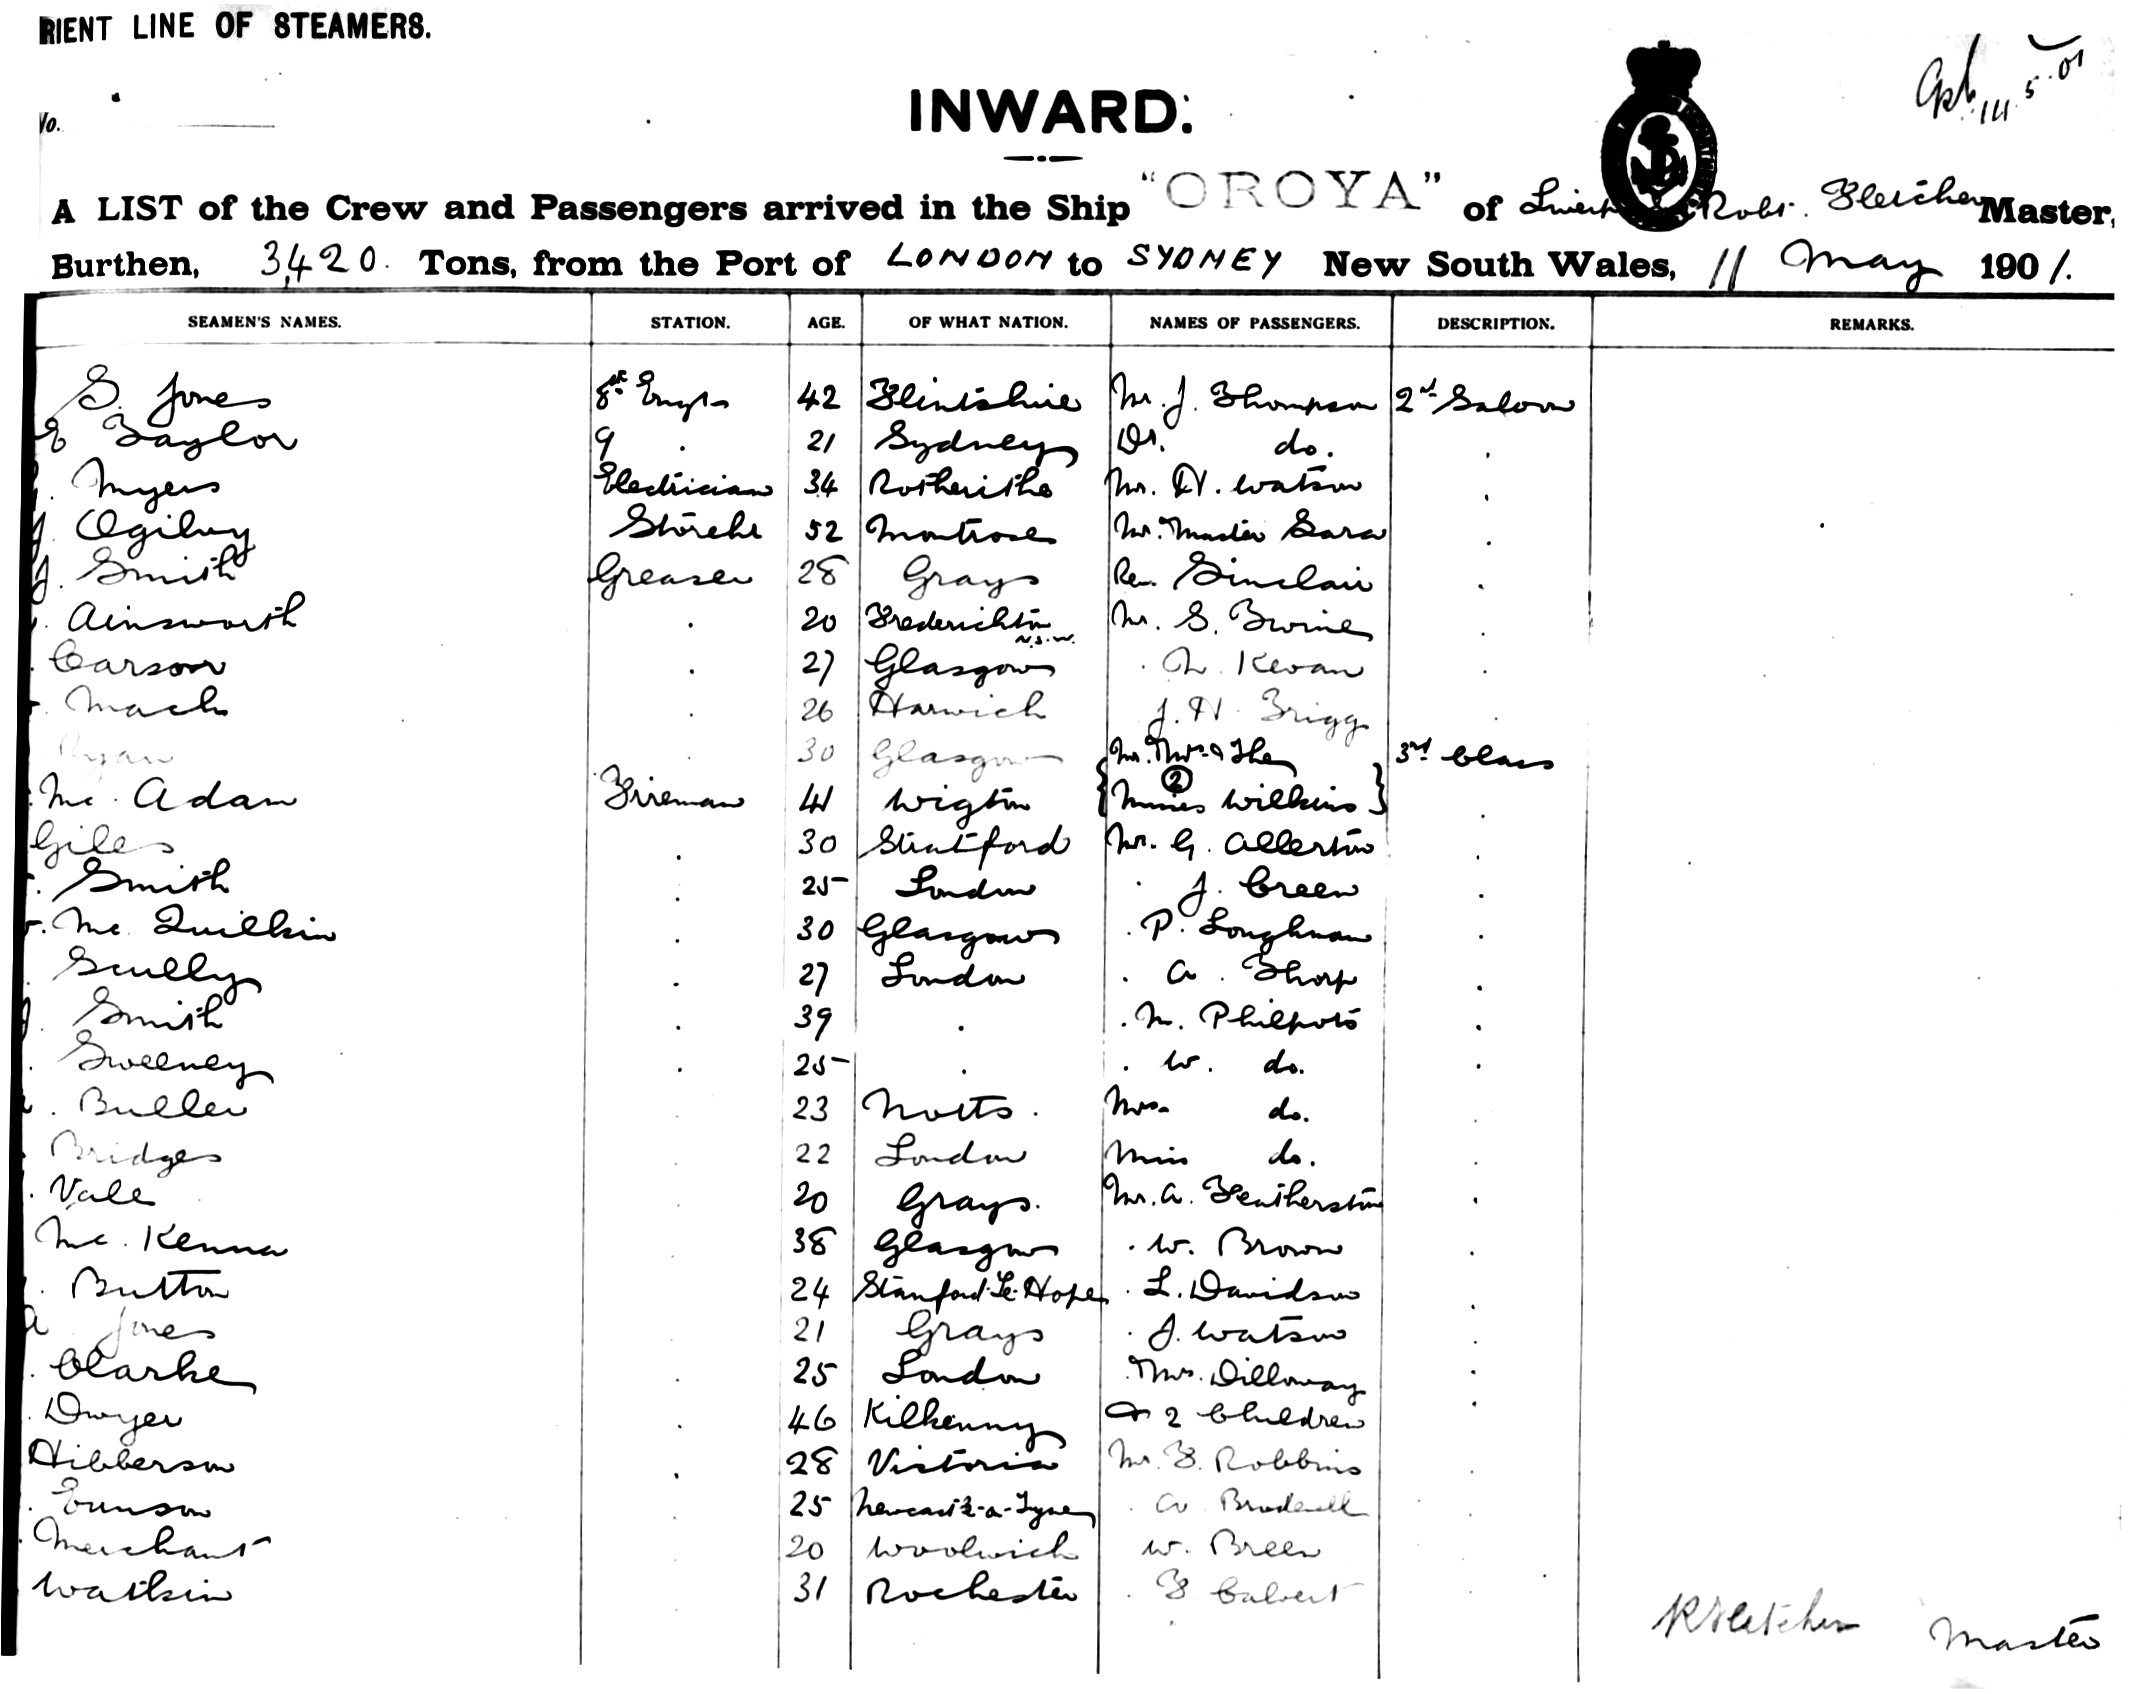 RIENT LINE OF STEAMERS.
No.
INWARD.
A LIST of the Crew and Passengers arrived in the Ship "OROYA" of Robt. Fletcher Master,
Burthen, 3,420. Tons, from the Port of LONDON to SYDNEY New South Wales, 11 May 1901.
SEAMEN'S NAMES. STATION. AGE. OF WHAT NATION. NAMES OF PASSENGERS. DESCRIPTION. REMARKS.
S. Jones 8th Engr 42 Flintshire Mr. J. Thompson 2nd Saloon
E Taylor 9 . 21 Sydney Dr. do. .
Myers Electrician 34 Rotherithe Mr. H. Watson .
J. Ogilvy Storekr 52 Montrose Mr. Master Sara .
J. Smith Greaser 28 Grays Rev. Sinclair .
Ainsworth . 20 Frederickton N.S.W. Mr. S. .
Carson . 27 Glasgow . Kevan .
Mack . 26 Harwich J. H. Brigg .
Ryan . 30 Glasgow Mr. Mrs & The 3rd Class
Mc. Adam Fireman 41 Wigton { (2) Misses Wilkins } .
Giles . 30 Stratford Mr. G. Allerton .
Smith . 25 London . J. Creen .
Mc. Quilkin . 30 Glasgow . P. Loughnan .
Scully . 27 London . A. Thorp .
J. Smith . 39 . . M. Philpots .
Sweeney . 25 . . W. do. .
Buller 23 Notts. Mrs do. .
Bridges . 22 London Miss do. .
Vale . 20 Grays. Mr. A. Featherston .
Mc. Kenna . 38 Glasgow . W. Brown .
Button . 24 Stanford-Le-Hope . L. Davidson .
A Jones 21 Grays . J. Watson .
Clarke . 25 London . Mrs. Dilloway .
Dwyer . 46 Kilkenny & 2 Children .
Hibberson . 28 Victoria Mr. F. Robbins .
Eunson . 25 Newcastle-o-Tyne . A Brudenell .
Merchant . 20 Woolwich W. Breen .
Watkin . 31 Rochester . F Calvert .
R Fletcher Master